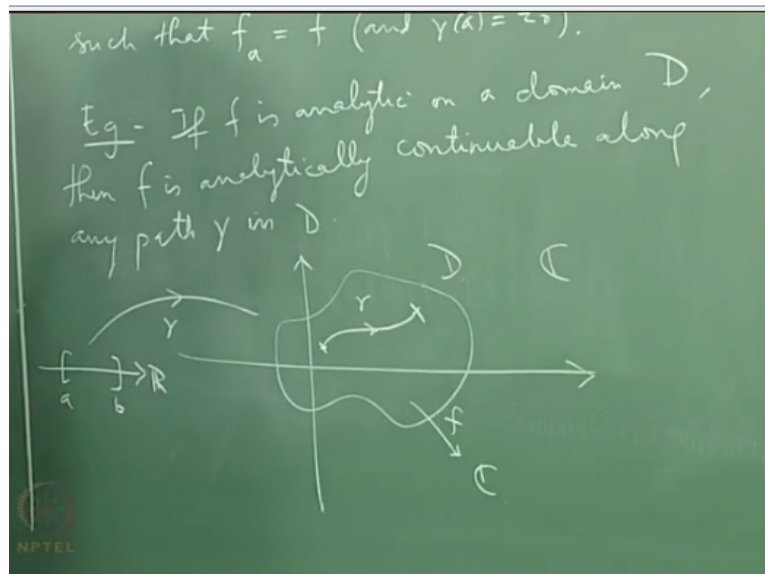 such that f_a = f (and γ(a) = z₀).
Eg- If f is analytic on a domain D,
then f is analytically continuable along
any path γ in D.
D ℂ
γ
γ
[ ] ℝ
a b
f
ℂ
NPTEL